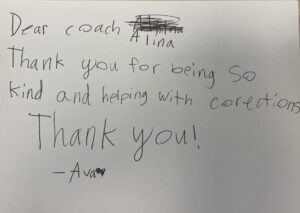 Dear coach
Alina
Thank you for being so
kind and helping with corections
Thank you!
-Ava